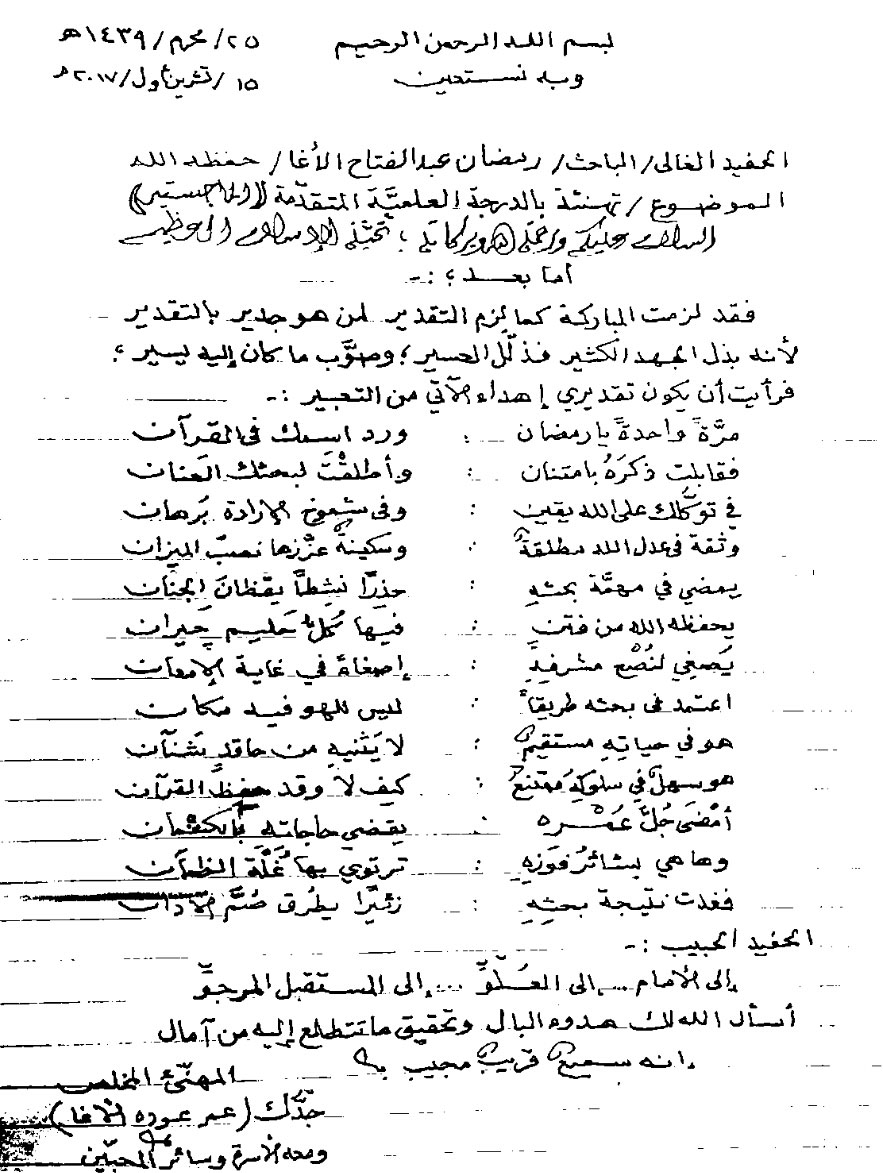 بسم الله الرحمن الرحيم ٢٥/محرم/١٤٣٩هـ
وبه نستعين ١٥/تشرين أول/٢٠١٧م
الحفيد الغالي/الباحث/رمضان عبدالفتاح الأغا/حفظه الله
الموضوع/تهنئة بالدرجة العلميَّة المتقدّمة (الماجستير)
السلام عليكم ورحمة الله وبركاته ؛ تحيّة الإسلام العظيم
أما بعد ؛ :-
فقد لزمت المباركة كما لزم التقدير لمن هو جدير بالتقدير
لأنه بذل الجهد الكثير فذلّل العسير ؛ وصوَّب ما كان إليه يسير ؛
فرأيت أن يكون تقديري إهداء الآتي من التعبير :-
مرَّةً واحدةً يا رمضان : ورد اسمك في القرآن
فقابلت ذكرَهُ بامتنان : وأطلقْتَ لبحثك العنان
في توكّلك على الله يقين : وفي شموخ الإرادة بُرهان
وثقة في عدل الله مطلقةٌ : وسكينةٌ عزّزها نصبُ الميزان
يمضي في مهمَّة بحثهِ : حذِرًا نشِطًا يقظانَ الجنان
يحفظه الله من فتنٍ : فيها كُلُّ حَليم حَيران
يُصغي لنُصْحِ مشرفيهِ : إصغاءً في غاية الإمعان
اعتمد في بحثه طريقاً : ليس للهو فيه مكان
هو في حياتِهِ مستقيمٌ : لا يَثنيهِ من حاقدٍ شنآن
هو سهلٌ في سلوكِهِ ممتنعٌ : كيف لا وقد حفِظَ القرآن
أمْضَى جُلَّ عُمْرِه : يقضي حاجاتِهِ بالكتمان
وها هي بشائرُ فوزِهِ : ترتوي بها غُلَّة الظمآن
فغدت نتيجة بحثِهِ : زئيرًا يطرُق صُمَّ الآذان
الحفيد الحبيب :-
إلى الأمام... إلى العُلوِّ ... إلى المستقبل المرجوِّ
أسأل الله لك هدوء البال وتحقيق ما تتطلع إليه من آمال
إنه سميعٌ قريبٌ مجيب
المهنّئ المخلص
جدّك (عمر عوده الأغا)
ومعه الأسرة وسائر المحبّين